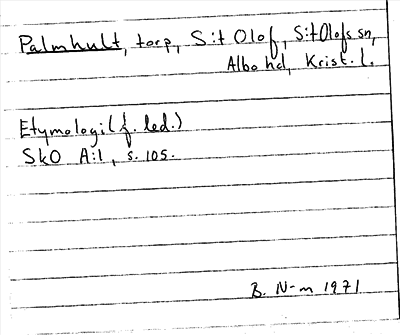 Palmhult, torp, S:t Olof, S:t Olofs sn,
Albo hd, Krist. l.
Etymologi (f. led.)
SkO A:1, s. 105.
B. N-m 1971